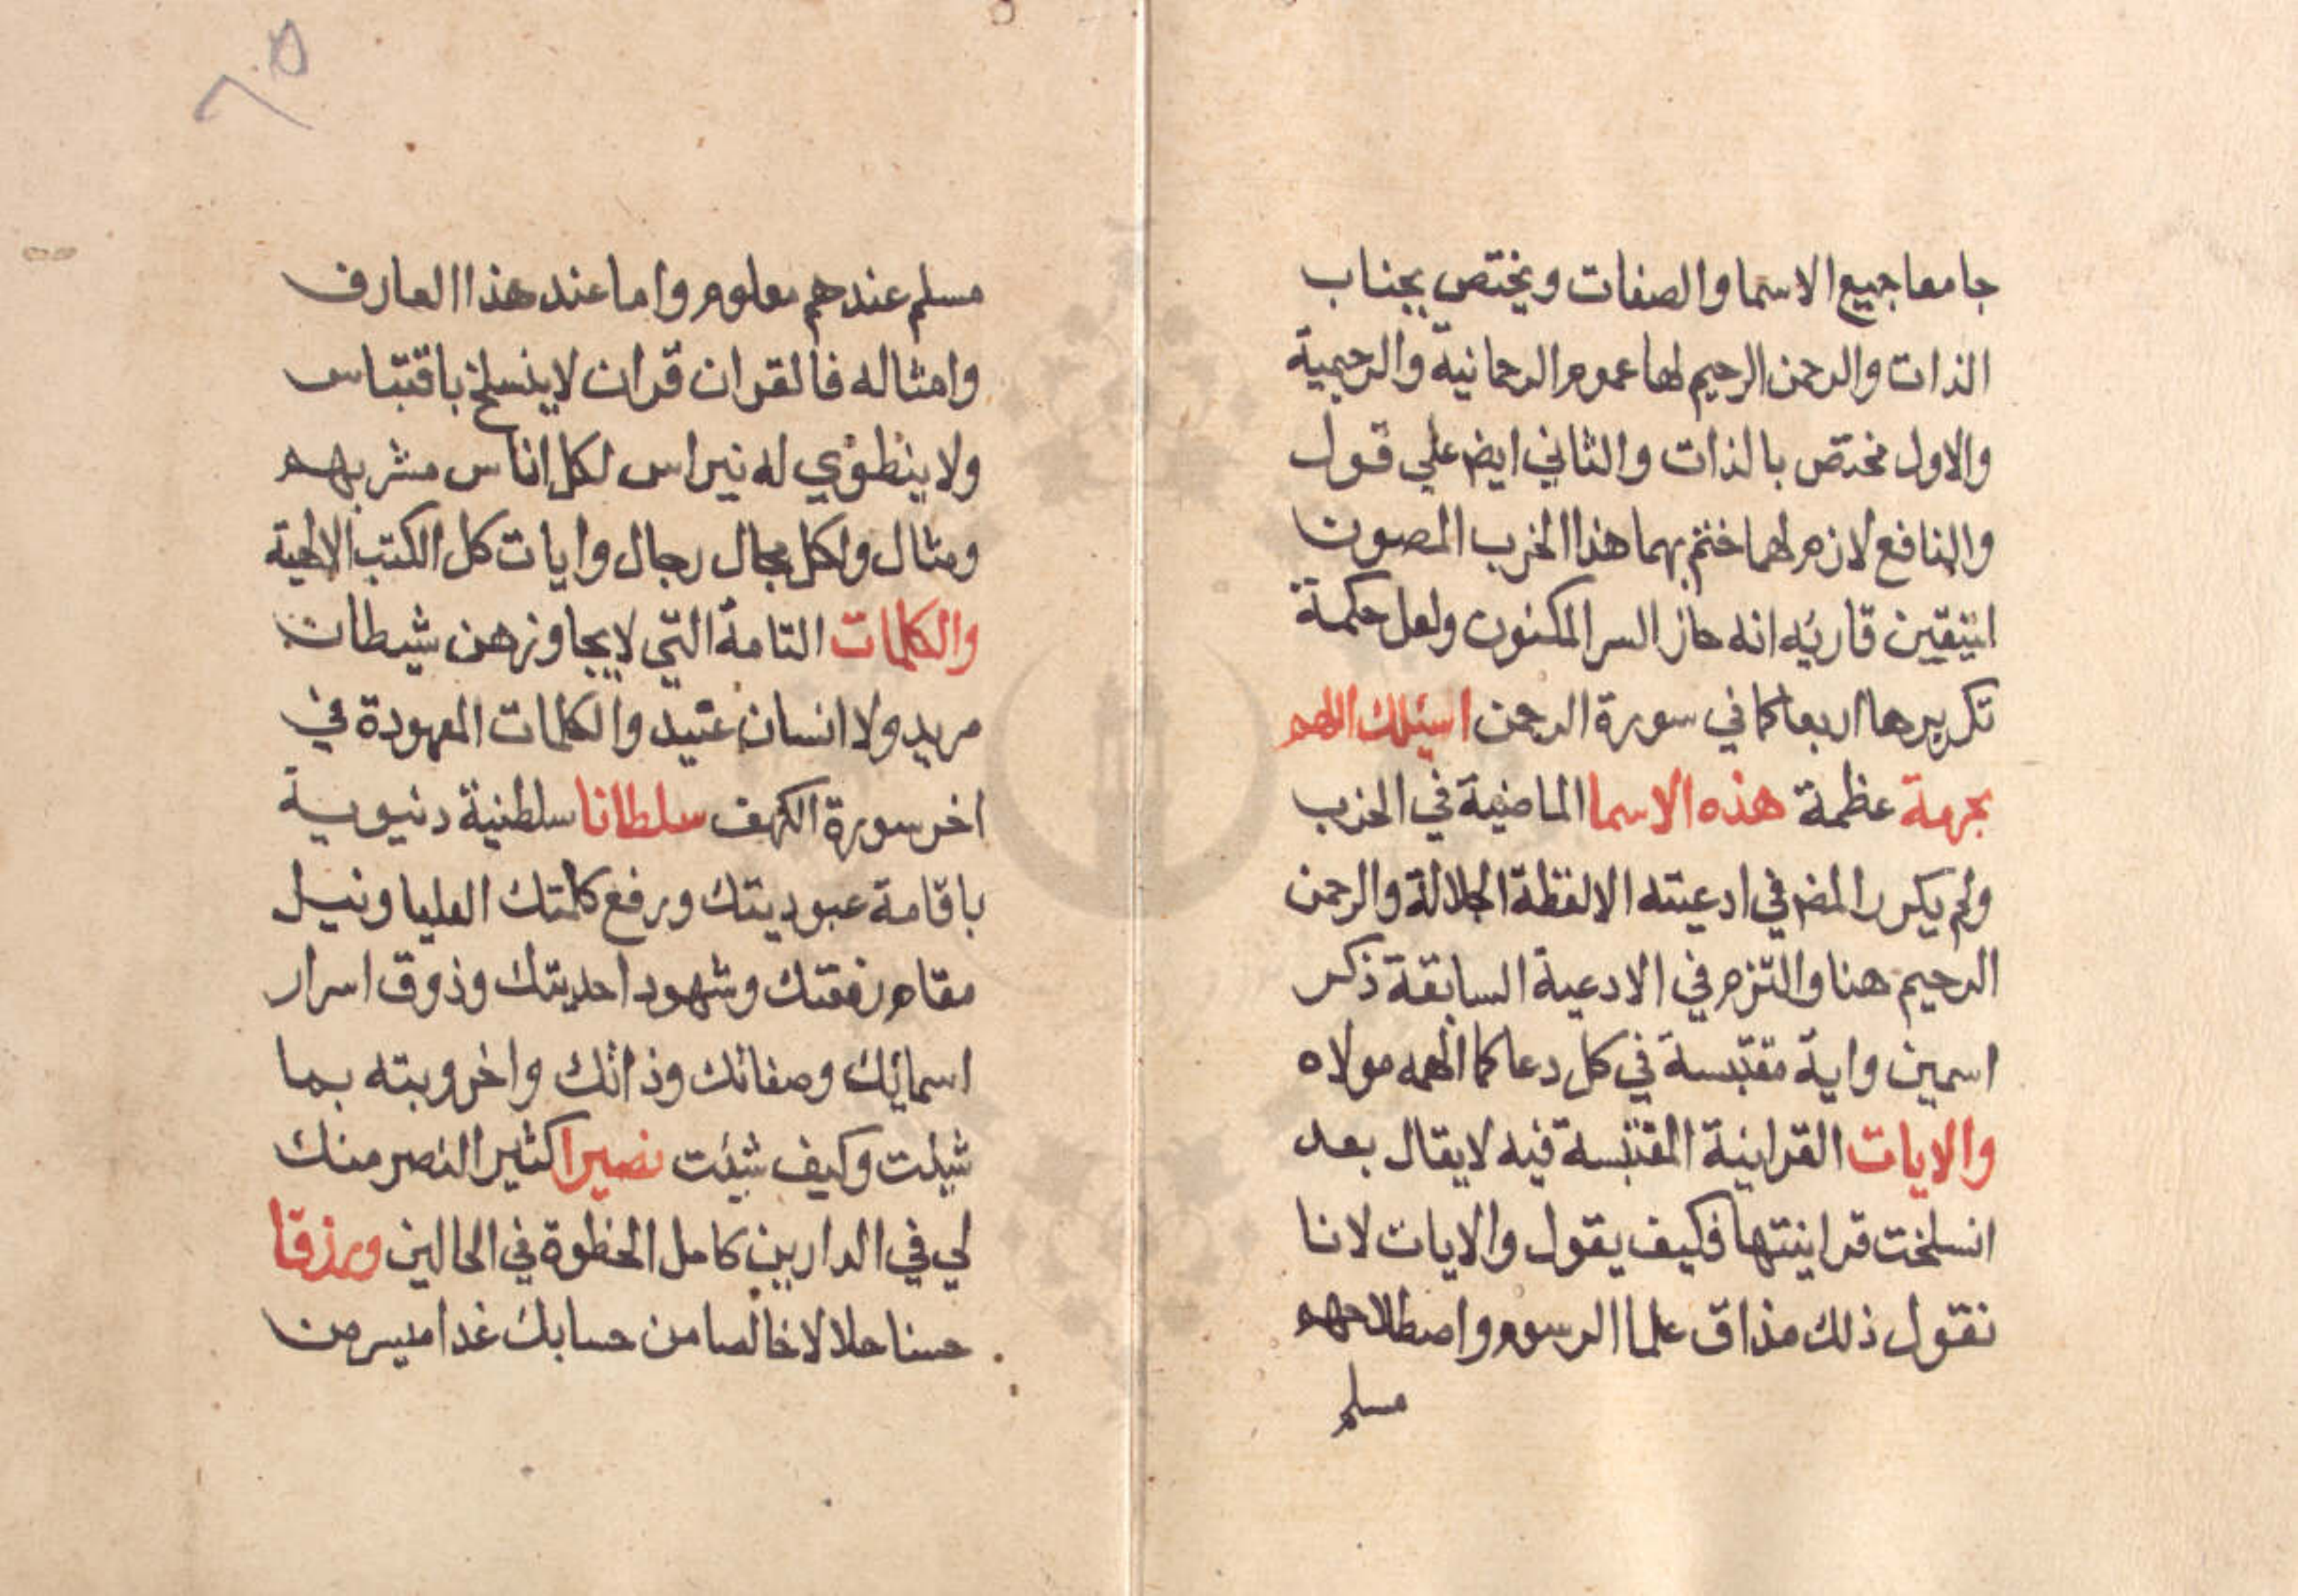 جامعا جميع الاسما والصفات ويختص بجناب
الذات والرحمن الرحيم لها عموم الرحمانية والرحيمية
والاول مختص بالذات والثاني ايض علي قول
والنافع لازم لهما ختم بهما هذا الحزب المصون
ليتيقين قاريه انه حاز السر المكنون ولعل حكمة
تكريرها اربعا كما في سورة الرحمن اسيلك اللهم
بحرمة عظمة هذه الاسما الماضية في الحزب
ولم يكرر المض في ادعيته الا لفظة الجلالة والرحمن
الرحيم هنا والتزم في الادعية السابقة ذكر
اسمين واية مقتبسة في كل دعا كما الهمه مولاه
والايات القرانية المقتبسة فيه لا يقال بعد
انسلخت قرانيتها فكيف يقول والايات لانا
نقول ذلك مذاق علما الرسوم واصطلاحهم
مسلم
٦٥
مسلم عندهم معلوم واما عند هذا العارف
وامثاله فالقران قران لا ينسلخ باقتباس
ولا ينطوي له نبراس لكل اناس مشربهم
ومثال ولكل مجال رجال وايات كل الكتب الالهية
والكلمات التامة التي لا يجاوزهن شيطان
مريد ولا انسان عتيد والكلمات المعهودة في
اخر سورة الكهف سلطانا سلطنية دنيوية
باقامة عبوديتك ورفع كلمتك العليا ونيل
مقام رفقتك وشهود احديتك وذوق اسرار
اسمائك وصفاتك وذاتك واخروية بما
شيت وكيف شيت نصيرا كثير النصر منك
لي في الدارين كامل الحظوة في الحالين ورزقا
حسنا حلالا خالصا من حسابك غدا ميسر من